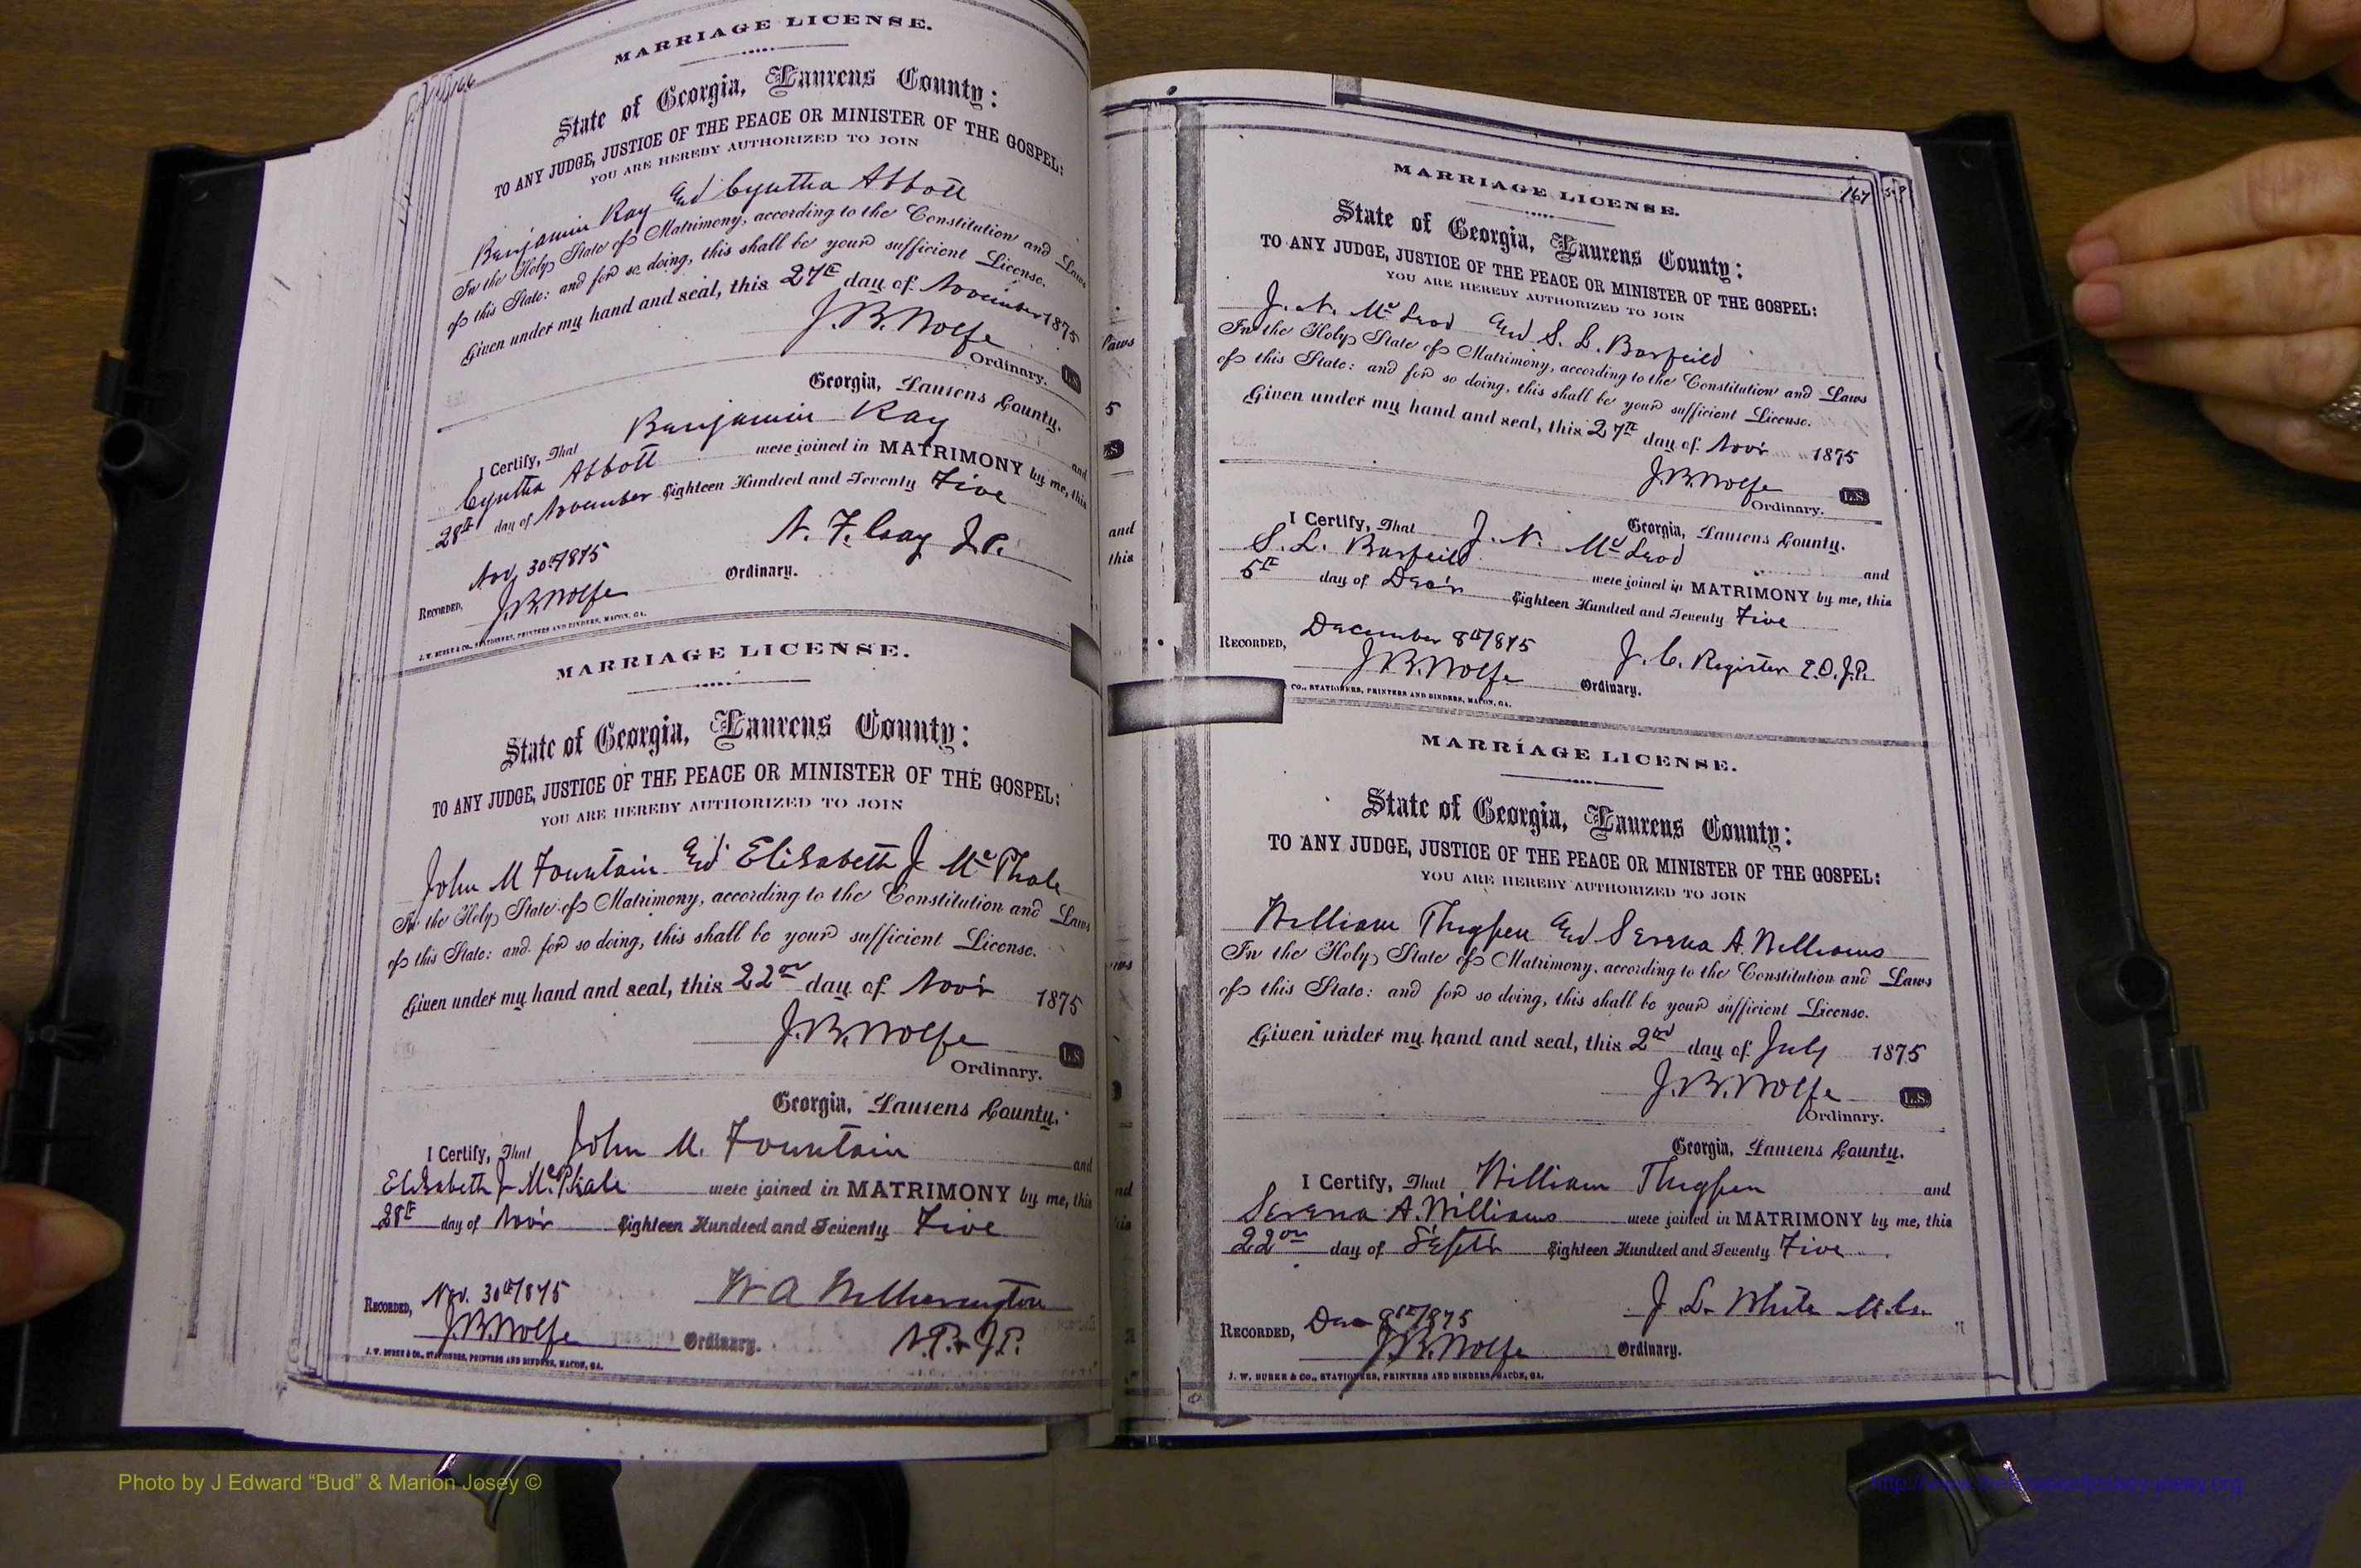 166
MARRIAGE LICENSE.
State of Georgia, Laurens County:
TO ANY JUDGE, JUSTICE OF THE PEACE OR MINISTER OF THE GOSPEL:
YOU ARE HEREBY AUTHORIZED TO JOIN
Benjamin Kay and Cyntha Abbott
In the Holy State of Matrimony, according to the Constitution and Laws
of this State: and for so doing, this shall be your sufficient License.
Given under my hand and seal, this 27th day of November 1875
J.B. Wolfe
Ordinary. L.S.
Georgia, Laurens County.
I Certify, That Benjamin Kay and
Cyntha Abbott were joined in MATRIMONY by me, this
28th day of November Eighteen Hundred and Seventy Five
N. F. Gay J.P.
Recorded, Nov 30th 1875
J.B. Wolfe Ordinary.
J. W. BURKE & CO., STATIONERS, PRINTERS AND BINDERS, MACON, GA.
MARRIAGE LICENSE.
State of Georgia, Laurens County:
TO ANY JUDGE, JUSTICE OF THE PEACE OR MINISTER OF THE GOSPEL:
YOU ARE HEREBY AUTHORIZED TO JOIN
John M Fountain and Elisabeth J McPhale
In the Holy State of Matrimony, according to the Constitution and Laws
of this State: and for so doing, this shall be your sufficient License.
Given under my hand and seal, this 22nd day of Novr 1875
J.B. Wolfe
Ordinary. L.S.
Georgia, Laurens County.
I Certify, That John M. Fountain and
Elisabeth J McPhale were joined in MATRIMONY by me, this
28th day of Novr Eighteen Hundred and Seventy Five
W A Witherington
N.P. & J.P.
Recorded, Nov. 30th 1875
J.B. Wolfe Ordinary.
J. W. BURKE & CO., STATIONERS, PRINTERS AND BINDERS, MACON, GA.
167
MARRIAGE LICENSE.
State of Georgia, Laurens County:
TO ANY JUDGE, JUSTICE OF THE PEACE OR MINISTER OF THE GOSPEL:
YOU ARE HEREBY AUTHORIZED TO JOIN
J. N. McLeod and S. L. Barfeild
In the Holy State of Matrimony, according to the Constitution and Laws
of this State: and for so doing, this shall be your sufficient License.
Given under my hand and seal, this 27th day of Novr 1875
J.B. Wolfe
Ordinary. L.S.
Georgia, Laurens County.
I Certify, That J. N. McLeod and
S. L. Barfeild were joined in MATRIMONY by me, this
5th day of Decr Eighteen Hundred and Seventy Five
Recorded, December 8th 1875 J. C. Register E.O.J.P.
J.B. Wolfe Ordinary.
CO., STATIONERS, PRINTERS AND BINDERS, MACON, GA.
MARRIAGE LICENSE.
State of Georgia, Laurens County:
TO ANY JUDGE, JUSTICE OF THE PEACE OR MINISTER OF THE GOSPEL:
YOU ARE HEREBY AUTHORIZED TO JOIN
William Thigpen and Serena A. Williams
In the Holy State of Matrimony, according to the Constitution and Laws
of this State: and for so doing, this shall be your sufficient License.
Given under my hand and seal, this 2nd day of July 1875
J.B. Wolfe
Ordinary. L.S.
Georgia, Laurens County.
I Certify, That William Thigpen and
Serena A. Williams were joined in MATRIMONY by me, this
22nd day of Septr Eighteen Hundred and Seventy Five
J. L. White
Recorded, Dec 8th 1875
J.B. Wolfe Ordinary.
J. W. BURKE & CO., STATIONERS, PRINTERS AND BINDERS, MACON, GA.
Photo by J Edward “Bud” & Marion Josey ©